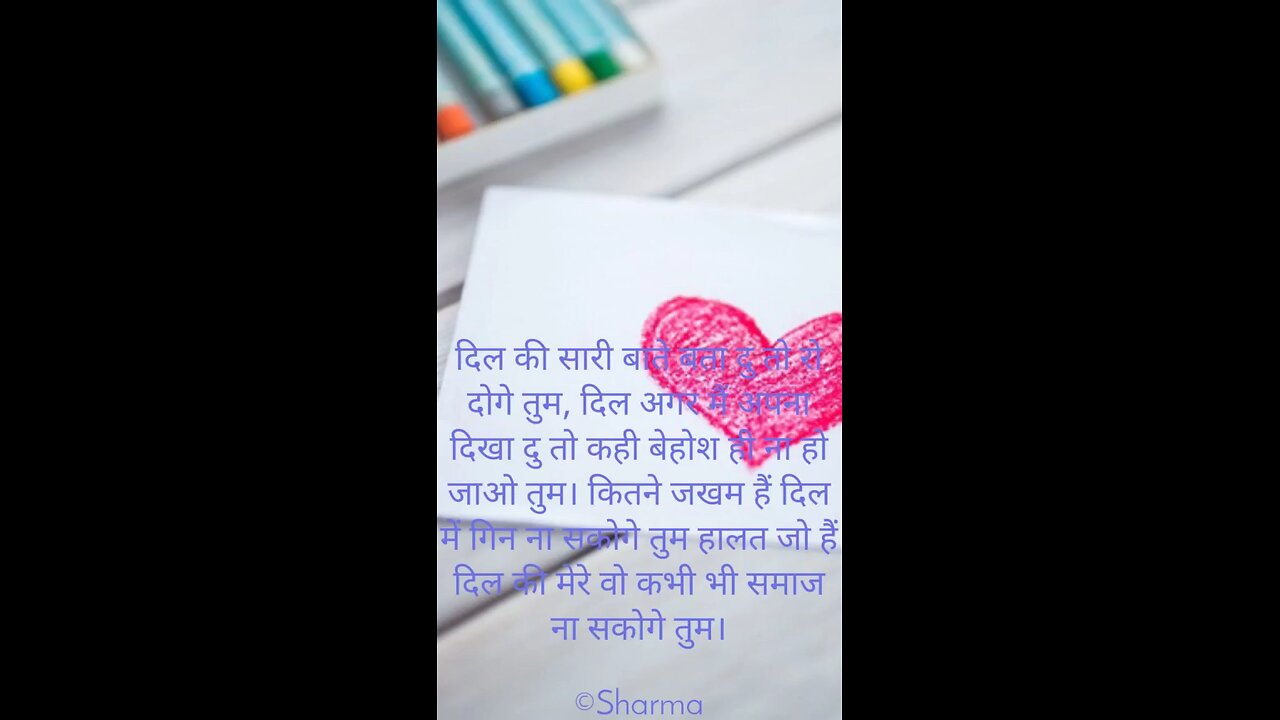 दिल की सारी बाते बता दु तो रो
दोगे तुम, दिल अगर मैं अपना
दिखा दु तो कही बेहोश ही ना हो
जाओ तुम। कितने जखम हैं दिल
में गिन ना सकोगे तुम हालत जो हैं
दिल की मेरे वो कभी भी समाज
ना सकोगे तुम।
©Sharma